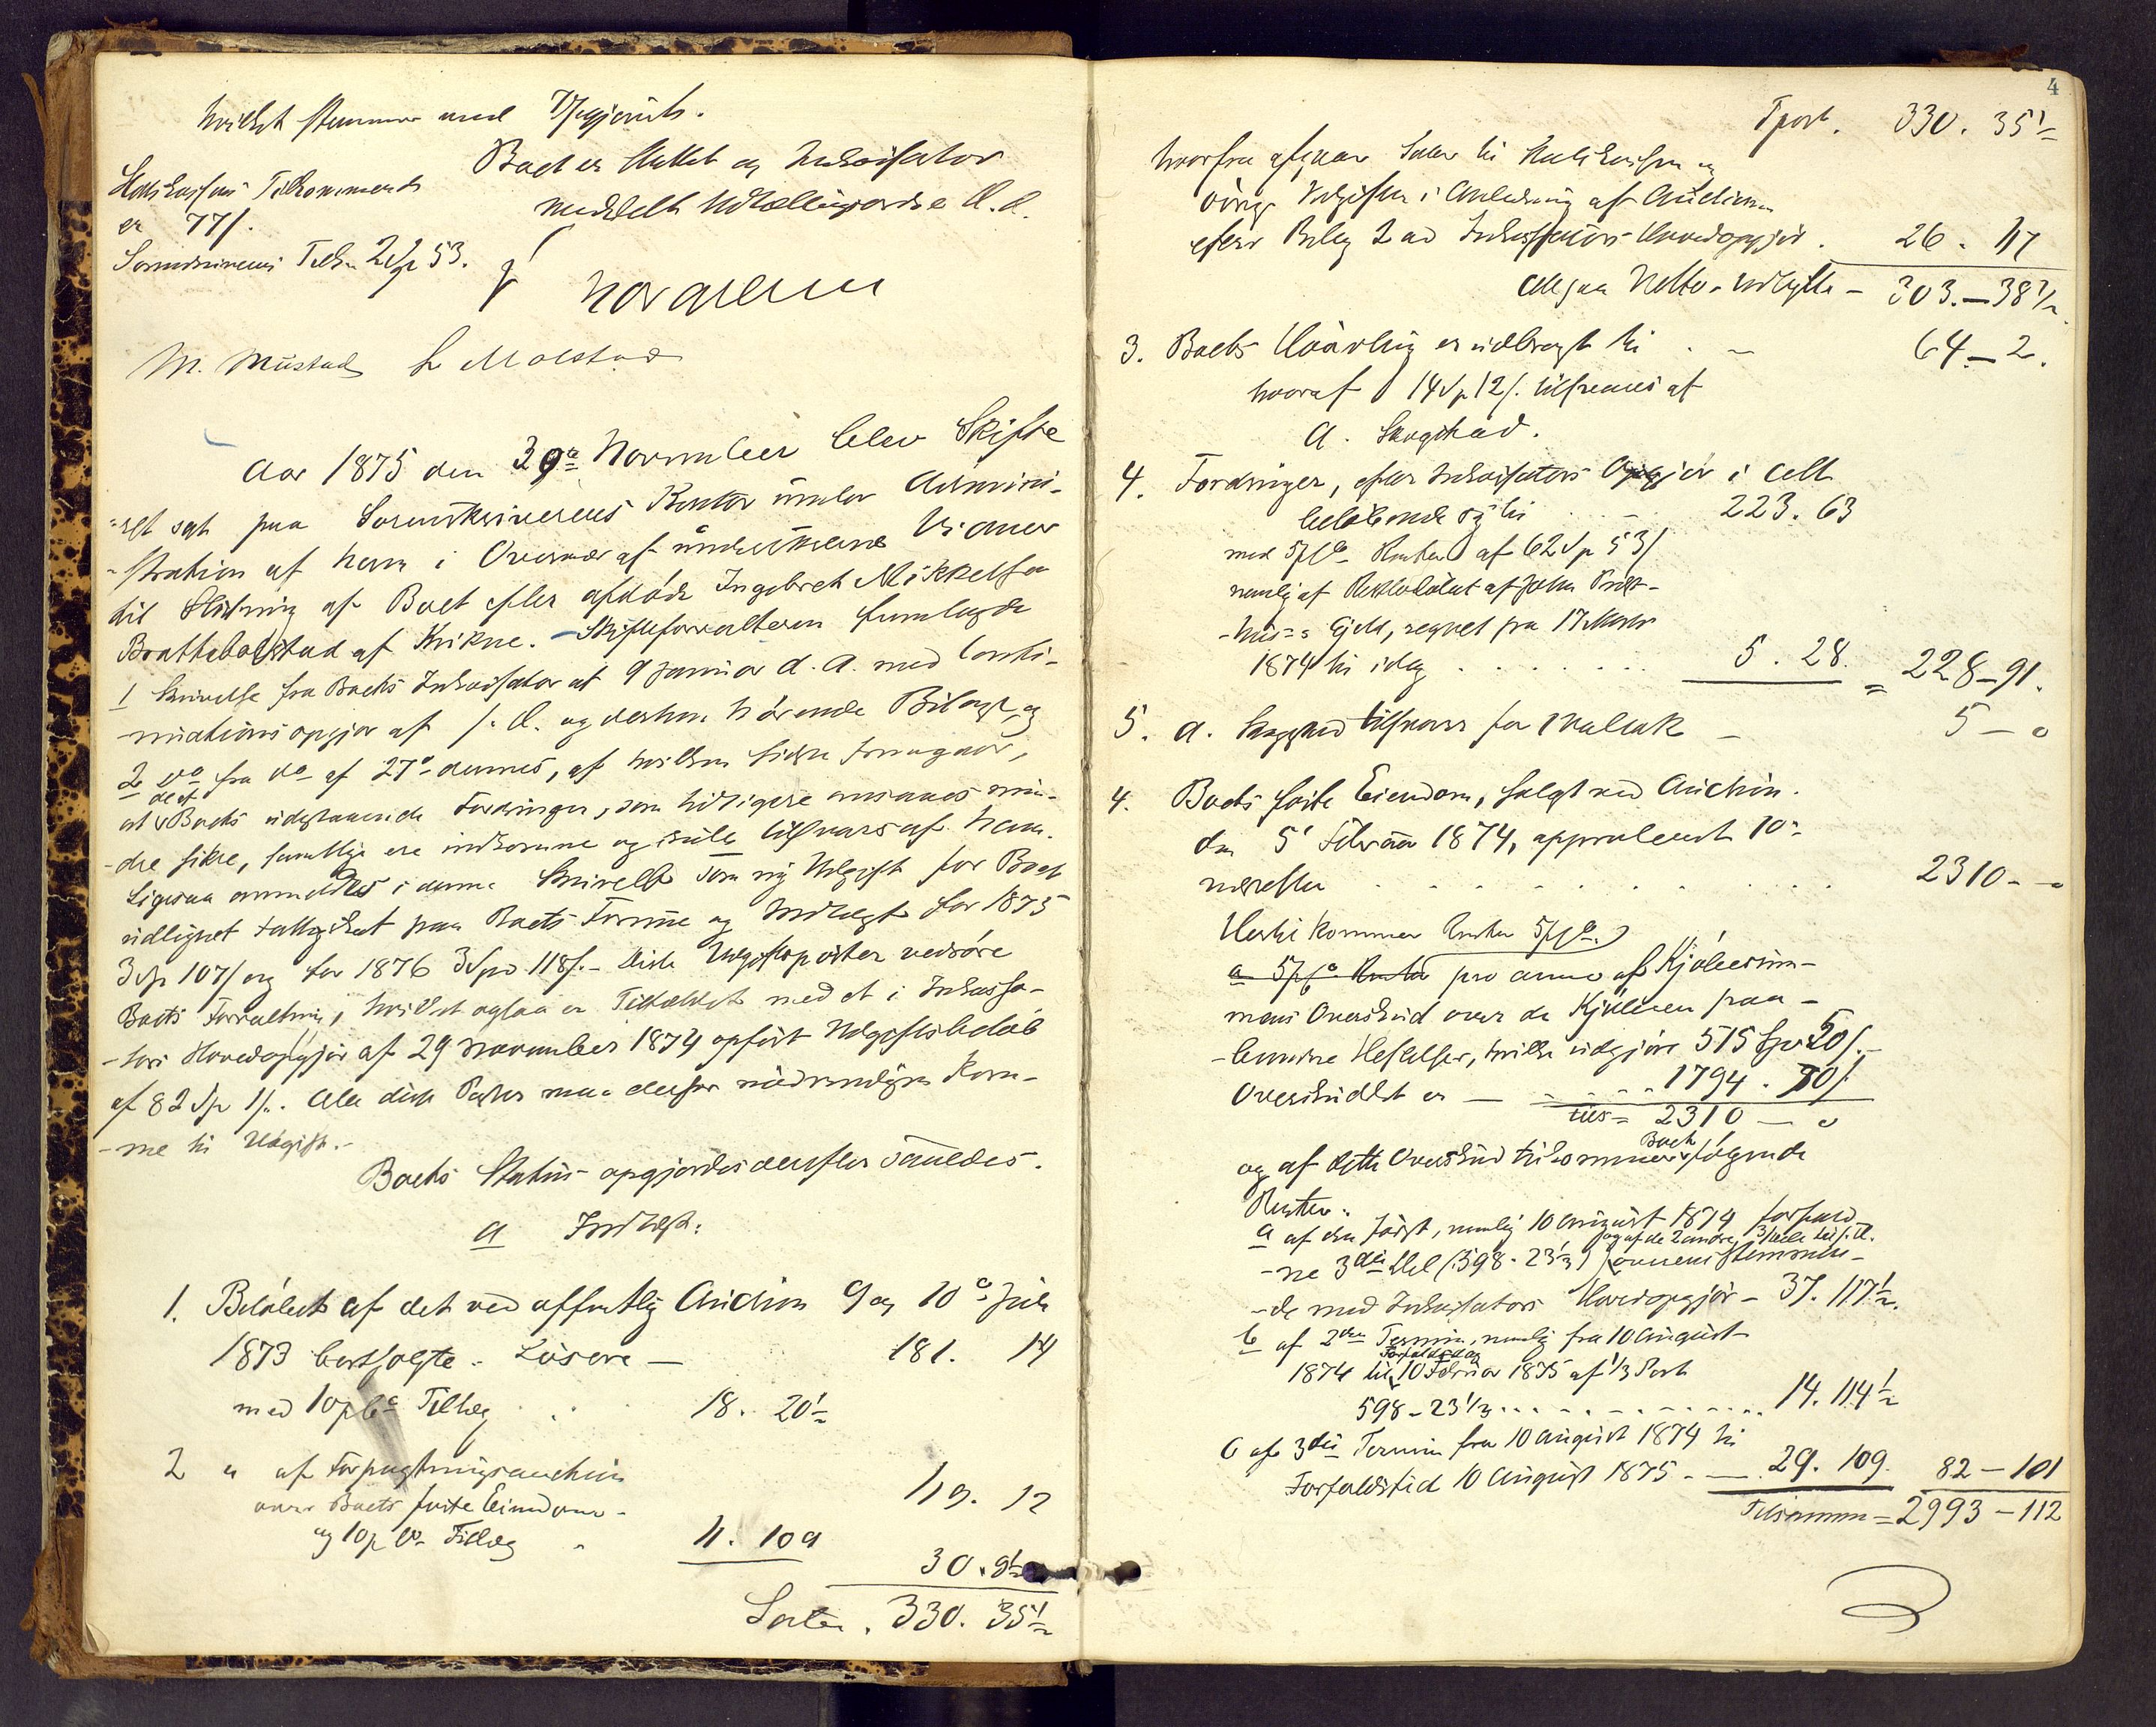 hvilket stemmer med Opgjøret.
Boet er sluttet og Inkassator
meddelt Udlægsordre d. d.
Statskassens Tilkommende
er 77 ſ.
Sorenskriverens Tilk. 2 Sp 53.
M. Mustad L Molstad
Aar 1875 den 30te November blev Skifte
-ret sat paa Sorenskriverens Kontor under Admini-
-stration af ham i Overvær af undertegnede Vidner
til Slutning af Boet efter afdøde Ingebret Mikkelsen
Brattebølstad af Kvikne. – Skifteforvalteren fremlagde
1 Skrivelse fra Boets Inkassator af 9 Januar d. A. med Conti-
-nuationsopgjør af s. D. og dertil hørende Bilage, og
2 do fra do af 27de dennes, af hvilken sidste fremgaar,
at de af Boets udestaaende Fordringer, som tidligere ansaaes min-
-dre sikre, samtlige ere indkomne og indtil tilsvares af ham.
Ligesaa anmeldes i denne Skrivelse som ny Udgift for Boet
udlignet Fattigskat paa Boets Formue og Indtægt for 1875
3 Sp 107 ſ og for 1876 3 Spd 118 ſ. – Disse Udgiftsposter vedrøre
Boets Forvaltning, hvilket ogsaa er Tilfældet med et i Inkassa-
-tors Hovedopgjør af 29 November 1874 opført Udgiftsbeløb
af 82 Sp 1 ſ. Alle disse Poster maa derfor nødvendigen kom-
-me til Udgift. –
Boets Status opgjordes derefter saaledes.
a Indtægt:
1. Beløbet af det ved offentlig Auction 9 og 10de Juli
1873 bortsolgte Løsøre — 181. 14
med 10 pCt Tillæg 18. 20½
2 a af Forpagtningsauction
over Boets faste Eiendom 119. 12
og 10 pCt Tillæg 11. 109
30. 9½
Latus. 330. 35½
4
Tpost. 330. 35½
hvorfra afgaar Salær til Statskassen og
øvrige Udgifter i Anledning af Auctionen
efter Bilag 2 ad Inkassators Hovedopgjør. 26. 117
Altsaa Netto-Udbytte – 303. – 38½
3. Boets Udavling er udbragt til 64 – 2.
hvoraf 14 Sp 12 ſ. tilsvares af
A. Skogstad.
4. Fordringer, efter Inkassators Opgjør i Alt
beløbende sig til 223. 63
med 5 pCt Renter af 62 Sp 53 ſ
nemlig af Restbeløbet af John
-hus's Gjeld, regnet fra 17 Marts
1874 til idag . . . 5. 28. = 228 – 91.
5. A. Skogstad tilsvarer for 1 Vallak – 5 – 0
4. Boets faste Eiendom, solgt ved Auction
den 5 Februar 1874, approberet 10de
næstefter . . . 2310 – 0
Hertil kommer Renter 5 pCt.
a 5 pCt Renter pro anno af Kjøbesum-
mens Overskud over de Kjøberen paa-
-hvilende Heftelser, hvilke udgjøre 515 Spd 50 ſ. –
Overskuddet er — 1794. 70 ſ.
tils = 2310 — 0
og af dette Overskud tilkommer Boet følgende
Renter:
a af den først, nemlig 10 August 1874 forfald-
-ne 3die Del (598. 23⅓) og af de 2 andre 3die Dele til s. D. overensstemmen-
-de med Inkassators Hovedopgjør – 37. 117½.
b af 2den Termin, nemlig fra 10 August
1874 til Forfaldsdag 10 Februar 1875 af ⅓ Part
598 – 23⅓ . . . 14. 114½
c af 3die Termin fra 10 August 1874 til
Forfaldstid 10 August 1875 – 29. 109. 82 – 101
Tilsammen = 2993 – 112